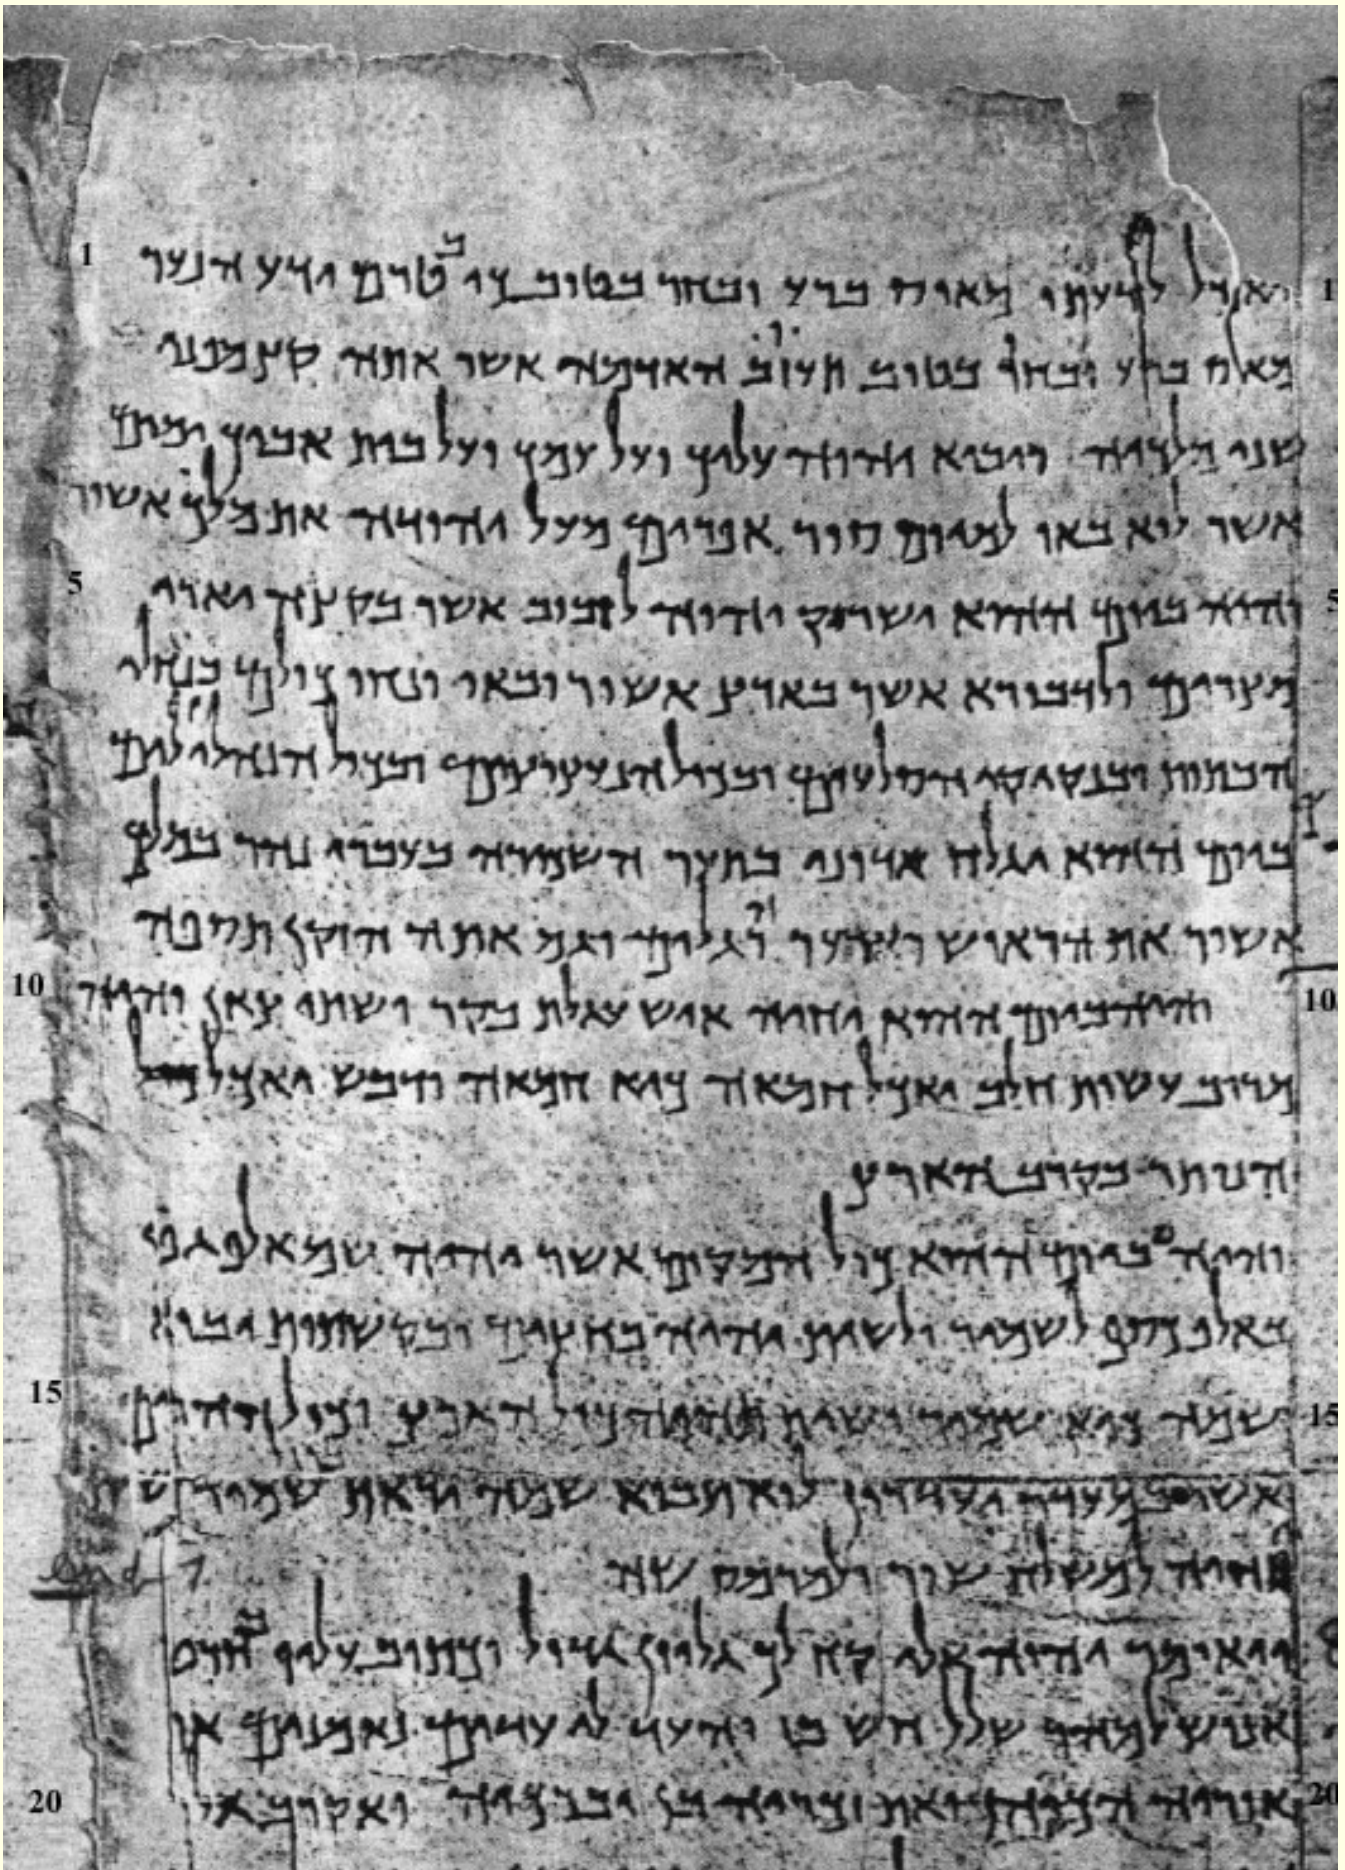 1 יואכל לדעתו מאוס ברע ובחר בטוב כי בטרם ידע הנער 1
מאוס ברע ובחר בטוב תעזוב האדמה אשר אתה קץ מפני
שני מלכיה ויביא יהוה עליך ועל עמך ועל בית אביך ימים
אשר לוא באו למיום סור אפרים מעל יהודה את מלך אשור
5 והיה ביום ההוא ישרוק יהוה לזבוב אשר בקצה יאורי 5
מצרים ולדבורא אשר בארץ אשור ובאו ונחו כולם בנחלי
הבתות ובנקיקי הסלעים ובכול הנעצוצים ובכול הנהלולים
ביום ההוא יגלח אדוני בתער השכירה בעברי נהר במלך
אשור את הראש ושער הרגלים וגם את הזקן תספה
10 והיה ביום ההוא יחיה איש עגלת בקר ושתי צאן והיה 10
מרוב עשות חלב יאכל חמאה כיא חמאה ודבש יאכל כול
הנותר בקרב הארץ
והיה ביום ההוא כול המקום אשר יהיה שמ אלף גפן
באלף כסף לשמיר ולשית יהיה בחצים ובקשתות יבוא
15 שמה כיא שמיר ושית תהיה כול הארץ וכול ההרים 15
אשר במעדר יעדרון לוא תבוא שמה יראת שמיר ושית
והיה למשלח שור ולמרמס שה end 7
ויאמר יהוה אלי קח לך גליון גדול וכתוב עליו בחרט
אנוש למהר שלל חש בז והעד לי עדים נאמנים את
20 אוריה הכוהן ואת זכריה בן יברכיה ואקרב אל 20